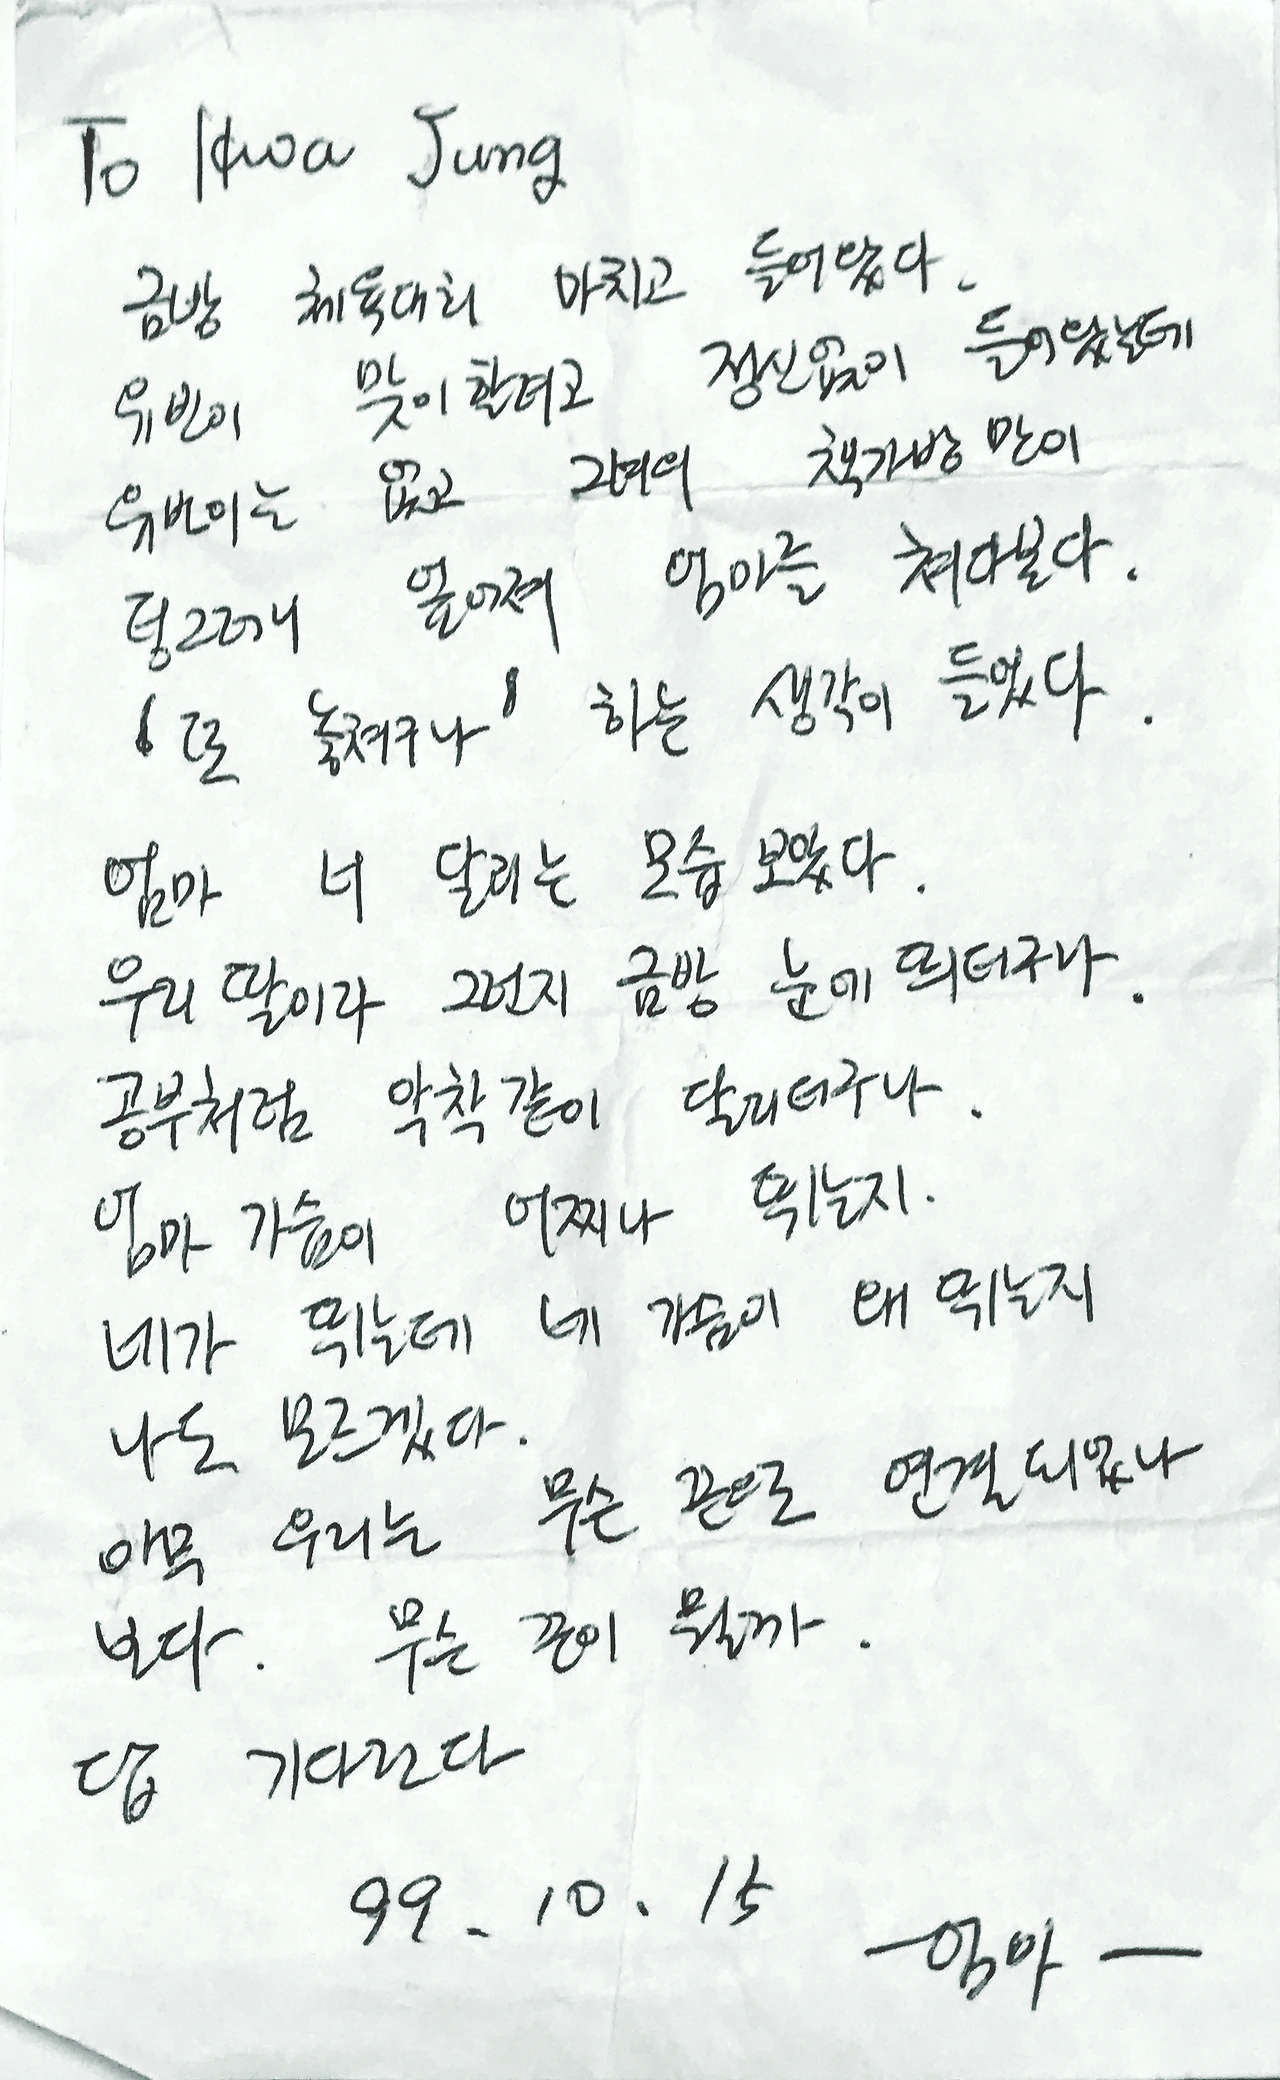 To Hwa Jung
금방 체육대회 마치고 들어왔다.
유빈이 맞이할려고 정신없이 들어왔는데
유빈이는 없고 그녀의 책가방만이
덩그러니 엎어져 엄마를 쳐다본다.
'또 놓쳐구나' 하는 생각이 들었다.
엄마 너 달리는 모습 보았다.
우리 딸이라 그런지 금방 눈에 띄더구나.
공부처럼 악착같이 달리더구나.
엄마 가슴이 어찌나 뛰는지.
네가 뛰는데 내 가슴이 왜 뛰는지
나도 모르겠다.
아무 우리는 무슨 끈으로 연결되었나
보다. 무슨 끈이 뭘까.
답 기다린다
99. 10. 15
- 엄마 -